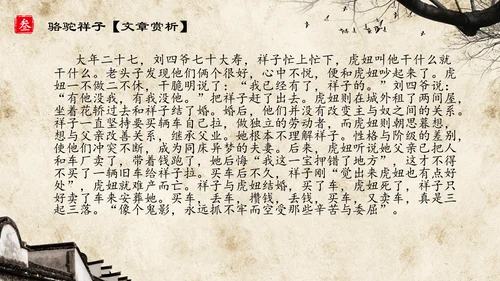 叁 骆驼祥子【文章赏析】
大年二十七，刘四爷七十大寿，祥子忙上忙下，虎妞叫他干什么就
干什么。老头子发现他们俩个很好，心中不悦，便和虎妞吵起来了。虎
妞一不做二不休，干脆明说了：“我已经有了，祥子的。”刘四爷说：
“有他没我，有我没他。”把祥子赶了出去。虎妞则在城外租了两间屋，
坐着花轿过去和祥子结了婚。婚后，他们并没有改变主与奴之间的关系。
祥子一直坚持要买辆车自己拉，做独立的劳动者，而虎妞则朝思暮想，
想与父亲改善关系，继承父业。她根本不理解祥子。性格与阶级的差别，
使他们冲突不断，成为同床异梦的夫妻。后来，虎妞听说她父亲已把人
和车厂卖了，带着钱跑了，她后悔“我这一宝押错了地方”，这才不得
不买了一辆旧车给祥子拉。买车后不久，祥子刚“觉出来虎妞也有点好
处”，虎妞就难产而亡。祥子与虎妞结婚，买了车，虎妞死了，祥子只
好卖了车来安葬她。买车，丢车，攒钱，丢钱，买车，又卖车，真是三
起三落。“像个鬼影，永远抓不牢而空受那些辛苦与委屈”。